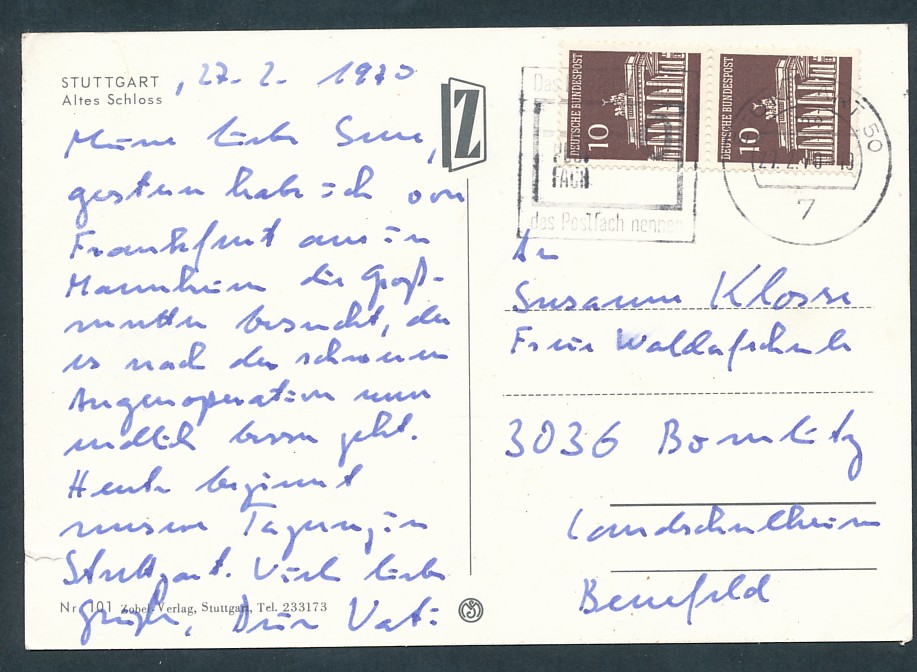 STUTTGART
Altes Schloss
, 27. 2. 1970
Meine liebe Suse,
gestern habe ich von
Frankfurt aus in
Mannheim die Groß-
mutter besucht, der
es nach der schweren
Augenoperation nun
endlich besser geht.
Heute beginnt
unsere Tagung in
Stuttgart. Viele liebe
Grüße, Dein Vati
Nr. 101 Zobel-Verlag, Stuttgart, Tel. 233173
Z
DEUTSCHE BUNDESPOST
10
DEUTSCHE BUNDESPOST
10
Das
FACH
das Postfach nennen
50
7
An
Susanne Klosse
Freie Waldorfschule
3036 Bomlitz
Landschulheim
Benefeld